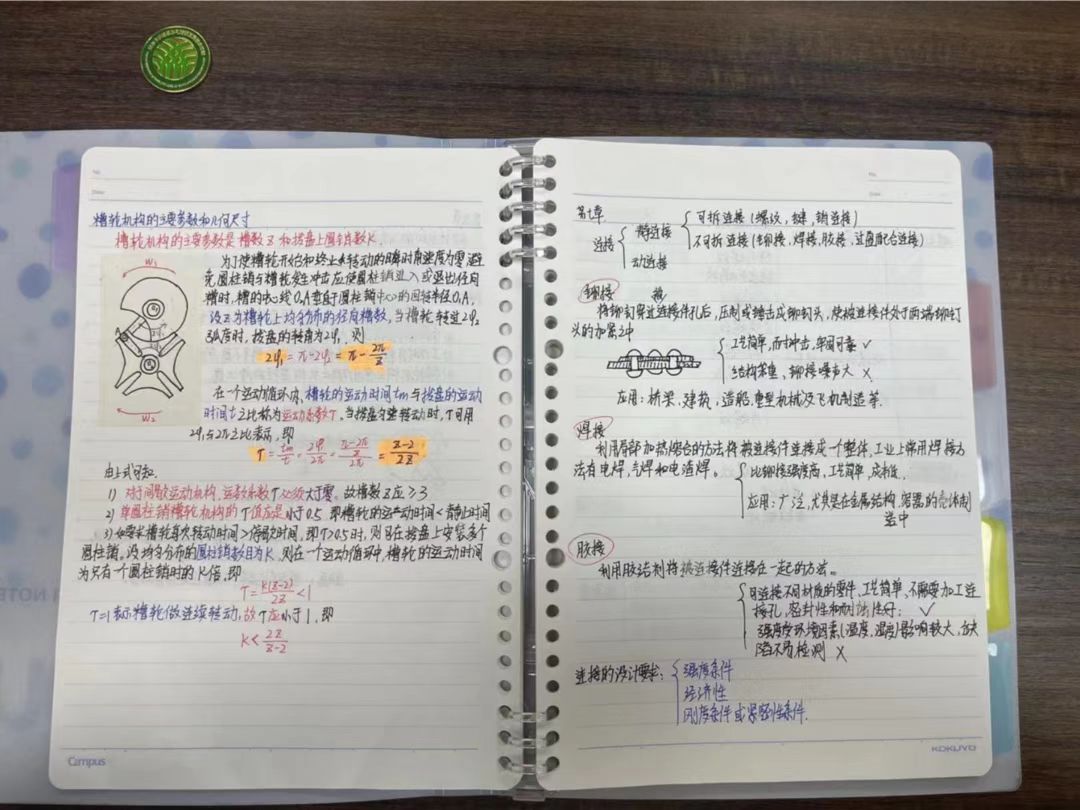 No.
Date
槽轮机构的主要参数和几何尺寸
槽轮机构的主要参数是槽数z和拨盘上圆销数K.
为了使槽轮开始和终止转动的瞬时角速度为零避
免圆柱销与槽轮发生冲击应使圆柱销进入或退出径向
槽时,槽的中心线O₂A垂直于圆柱销中心的回转半径O₁A.
设z为槽轮上均匀分布的径向槽数,当槽轮转过2φ₂
弧度时,拨盘的转角为2φ₁,则
2φ₁=π-2φ₂=π-2π/z
W₁
W₂
在一个运动循环内,槽轮的运动时间tm与拨盘的运动
时间t之比称为运动系数τ.当拨盘匀速转动时,τ可用
2φ₁与2π之比表示,即
τ=tm/t=2φ/2π=(π-2π/z)/2π=(z-2)/2z
由上式可知.
1) 对间歇运动机构,运动系数τ必须大于零.故槽数z应≥3
2) 单圆柱销槽轮机构的τ值总是小于0.5 即槽轮的运动时间<静止时间
3) 如要求槽轮每次转动时间>停歇时间,即τ>0.5时,则可在拨盘上安装多个
圆柱销。设均匀分布的圆柱销数目为K.则在一个运动循环中,槽轮的运动时间
为只有一个圆柱销时的K倍,即
τ=K(z-2)/2z<1
τ=1表示槽轮做连续转动,故τ应小于1,即
K<2z/(z-2)
Campus
No.
Date
第七章
连接 { 静连接 { 可拆连接(螺纹,键,销连接)
不可拆连接(铆接,焊接,胶接,过盈配合连接)
动连接
铆接
将铆钉穿过连接件孔后,压制或锤击成铆钉头,使被连接件处于两端铆钉
头的加紧中
{ 工艺简单,耐冲击,牢固可靠 ✓
结构笨重,铆接噪声大 ×
应用:桥梁,建筑,造船,重型机械及飞机制造等.
焊接
利用局部加热熔合的方法将被连接件连接成一个整体.工业上常用焊接方
法有电焊,气焊和电渣焊。 { 比铆接强度高,工艺简单,成本低.
应用:广泛,尤其是在金属结构,容器的壳体制
造中
胶接
利用胶结剂将被连接件连接在一起的方法。
{ 可连接不同材质的零件,工艺简单,不需要加工连
接孔,密封性和耐蚀性好; ✓
强度受环境因素(温度,湿度)影响较大,缺
陷不易检测 ×
连接的设计要求: { 强度条件
经济性
刚度条件或紧密性条件.
KOKUYO